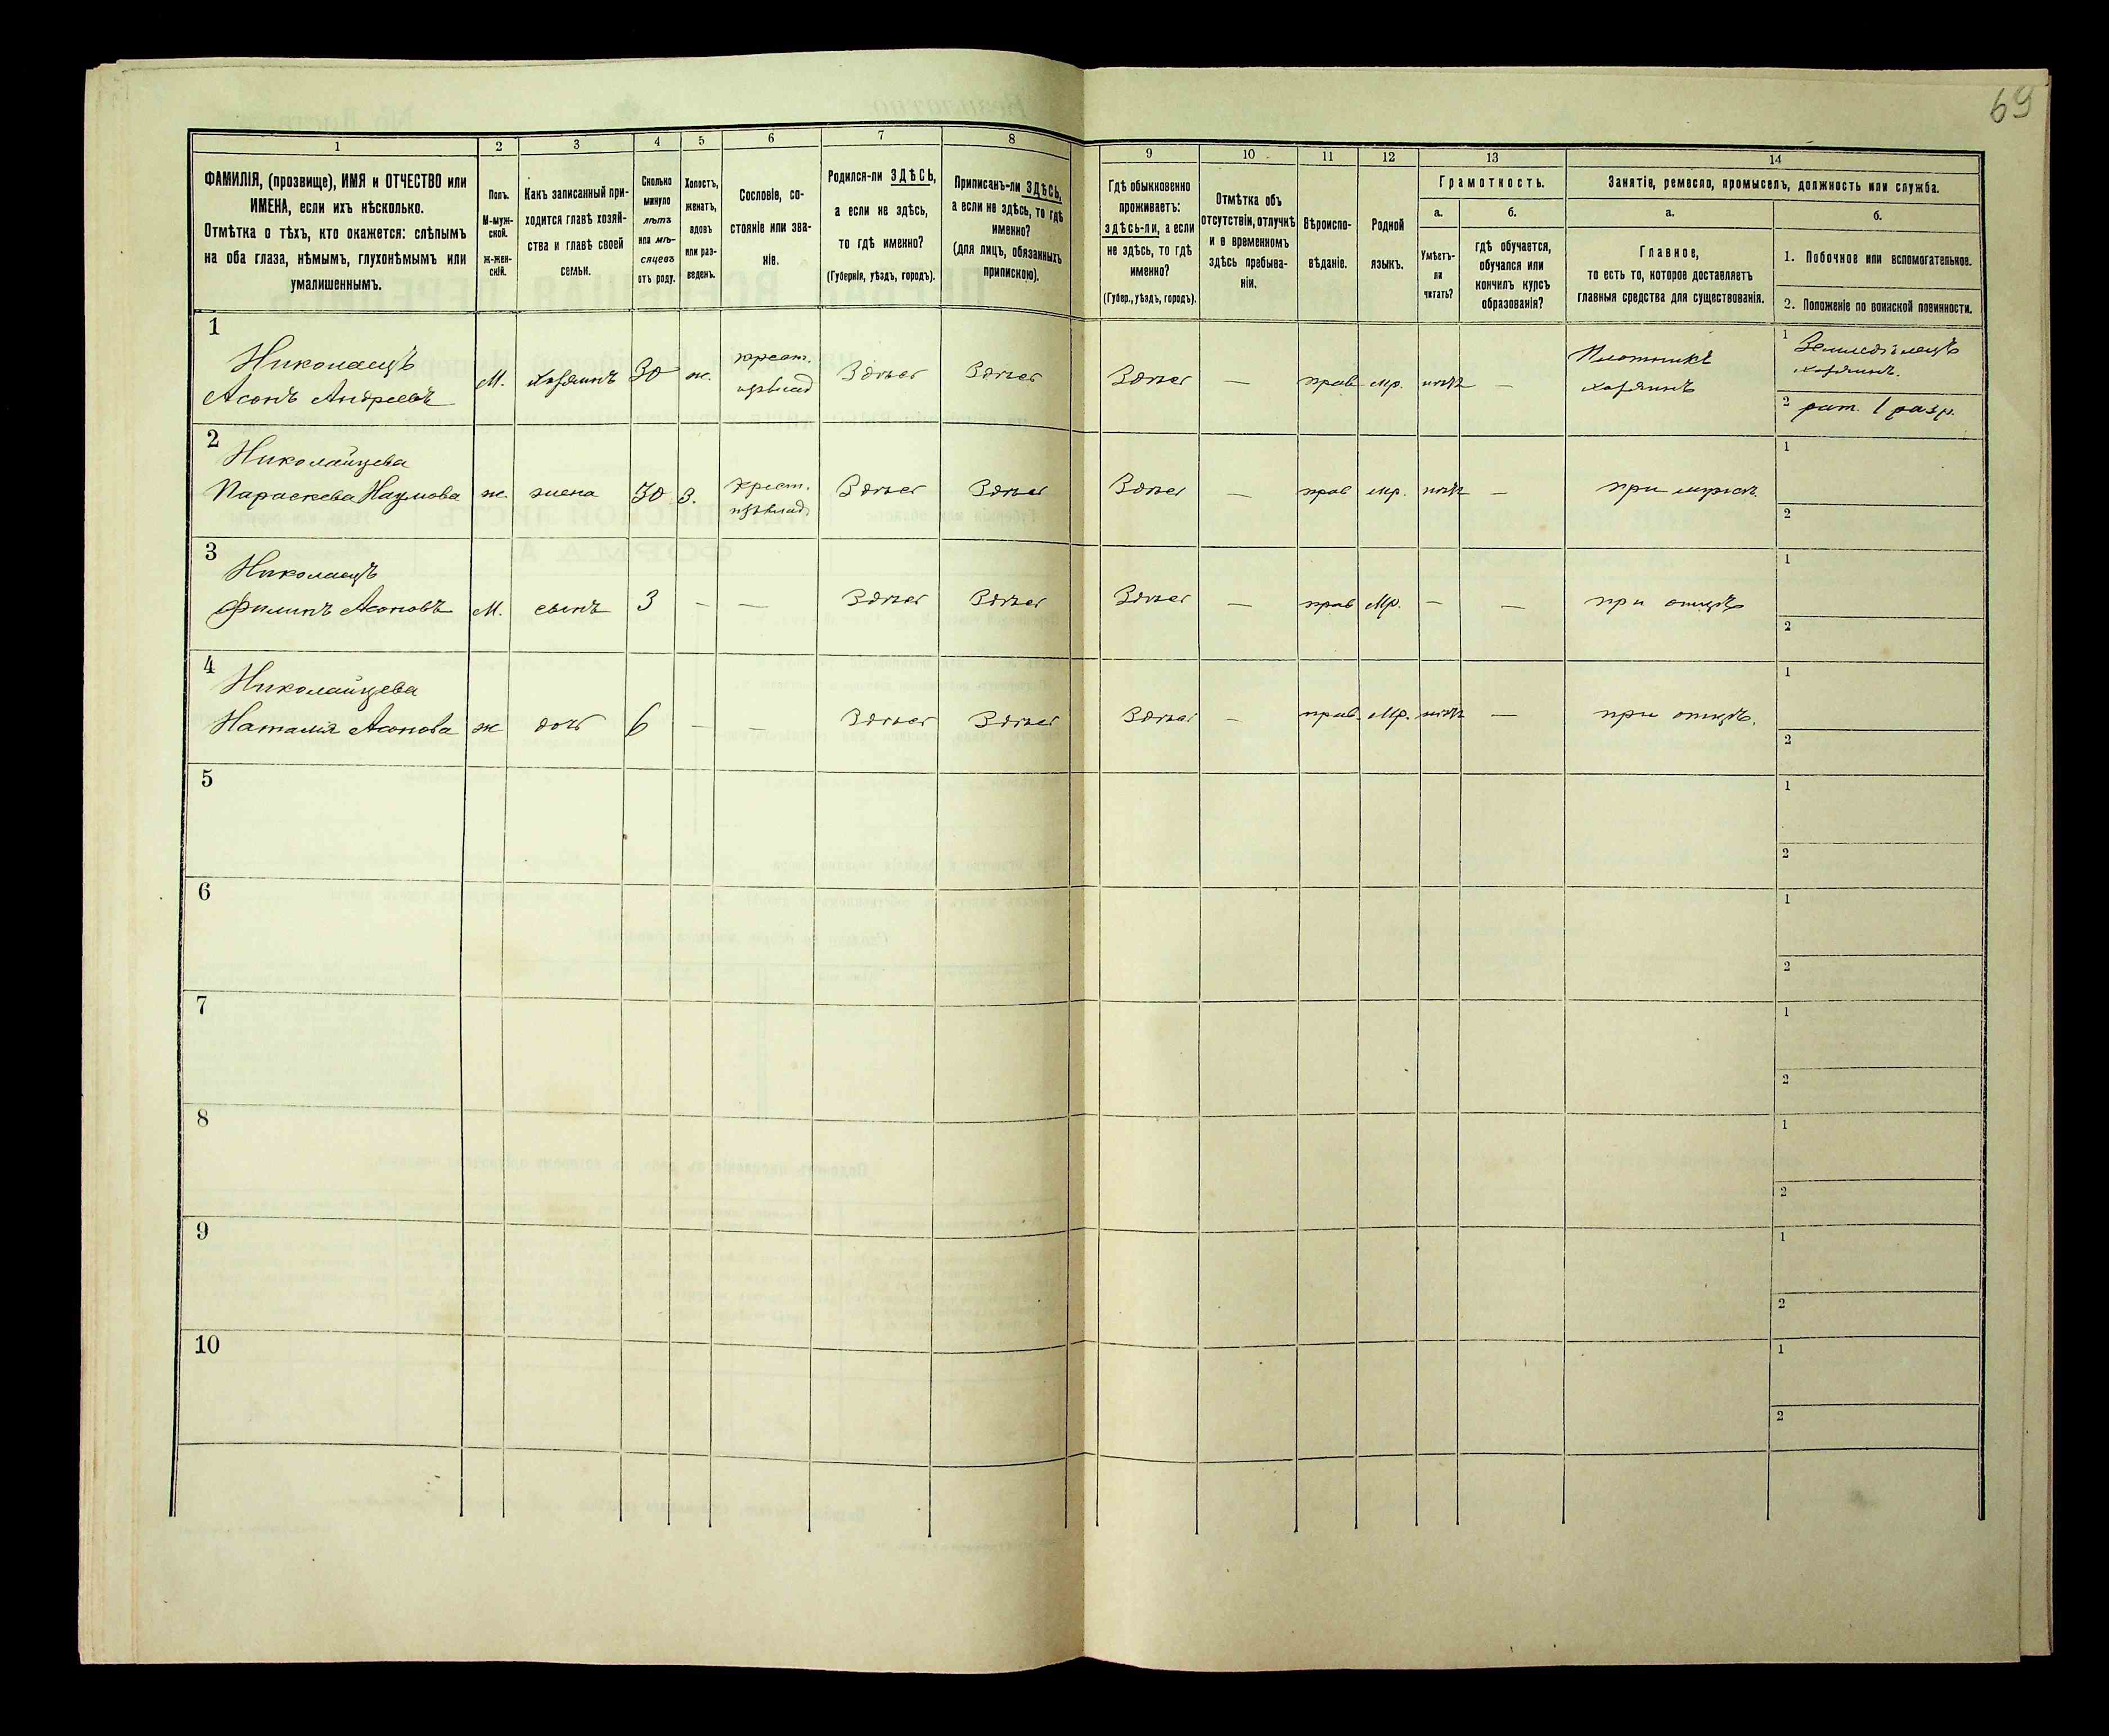 69
1
2
3
4
5
6
7
8
9
10
11
12
13
14
ФАМИЛІЯ, (прозвище), ИМЯ и ОТЧЕСТВО или
ИМЕНА, если ихъ нѣсколько.
Отмѣтка о тѣхъ, кто окажется: слѣпымъ
на оба глаза, нѣмымъ, глухонѣмымъ или
умалишеннымъ.
Полъ.
М-муж-
ской.
Ж-жен-
скій.
Какъ записанный при-
ходится главѣ хозяй-
ства и главѣ своей
семьи.
Сколько
минуло
лѣтъ
или мѣ-
сяцевъ
отъ роду.
Холостъ,
женатъ,
вдовъ
или раз-
веденъ.
Сословіе, со-
стояніе или зва-
ніе.
Родился-ли ЗДѢСЬ,
а если не здѣсь,
то гдѣ именно?
(Губернія, уѣздъ, городъ).
Приписанъ-ли ЗДѢСЬ,
а если не здѣсь, то гдѣ
именно?
(для лицъ, обязанныхъ
припискою).
Гдѣ обыкновенно
проживаетъ:
здѣсь-ли, а если
не здѣсь, то гдѣ
именно?
(Губер., уѣздъ, городъ).
Отмѣтка объ
отсутствіи, отлучкѣ
и о временномъ
здѣсь пребыва-
ніи.
Вѣроиспо-
вѣданіе.
Родной
языкъ.
Грамотность.
а.
Умѣетъ-
ли
читать?
б.
гдѣ обучается,
обучался или
кончилъ курсъ
образованія?
Занятіе, ремесло, промыселъ, должность или служба.
а.
Главное,
то есть то, которое доставляетъ
главныя средства для существованія.
б.
1. Побочное или вспомогательное.
2. Положеніе по воинской повинности.
1
Николаецъ
Асонъ Андреевъ
М.
хозяинъ
30
ж.
крест.
Здѣсь
Здѣсь
Здѣсь
—
прав
мр.
нѣтъ
—
Плотникъ
хозяинъ
1 Земледѣлецъ
хозяинъ.
2 рат. 1 разр.
2
Николайцева
Параскева Наумова
ж.
жена
30
З.
крест.
Здѣсь
Здѣсь
Здѣсь
—
прав
мр.
нѣтъ
—
при мужѣ.
1
2
3
Николаецъ
Филипъ Асоновъ
М.
сынъ
3
—
—
Здѣсь
Здѣсь
Здѣсь
—
прав
Мр.
—
—
при отцѣ
1
2
4
Николайцева
Наталія Асонова
ж
дочь
6
—
—
Здѣсь
Здѣсь
Здѣсь
—
прав.
Мр.
нѣтъ
—
при отцѣ.
1
2
5
1
2
6
1
2
7
1
2
8
1
2
9
1
2
10
1
2